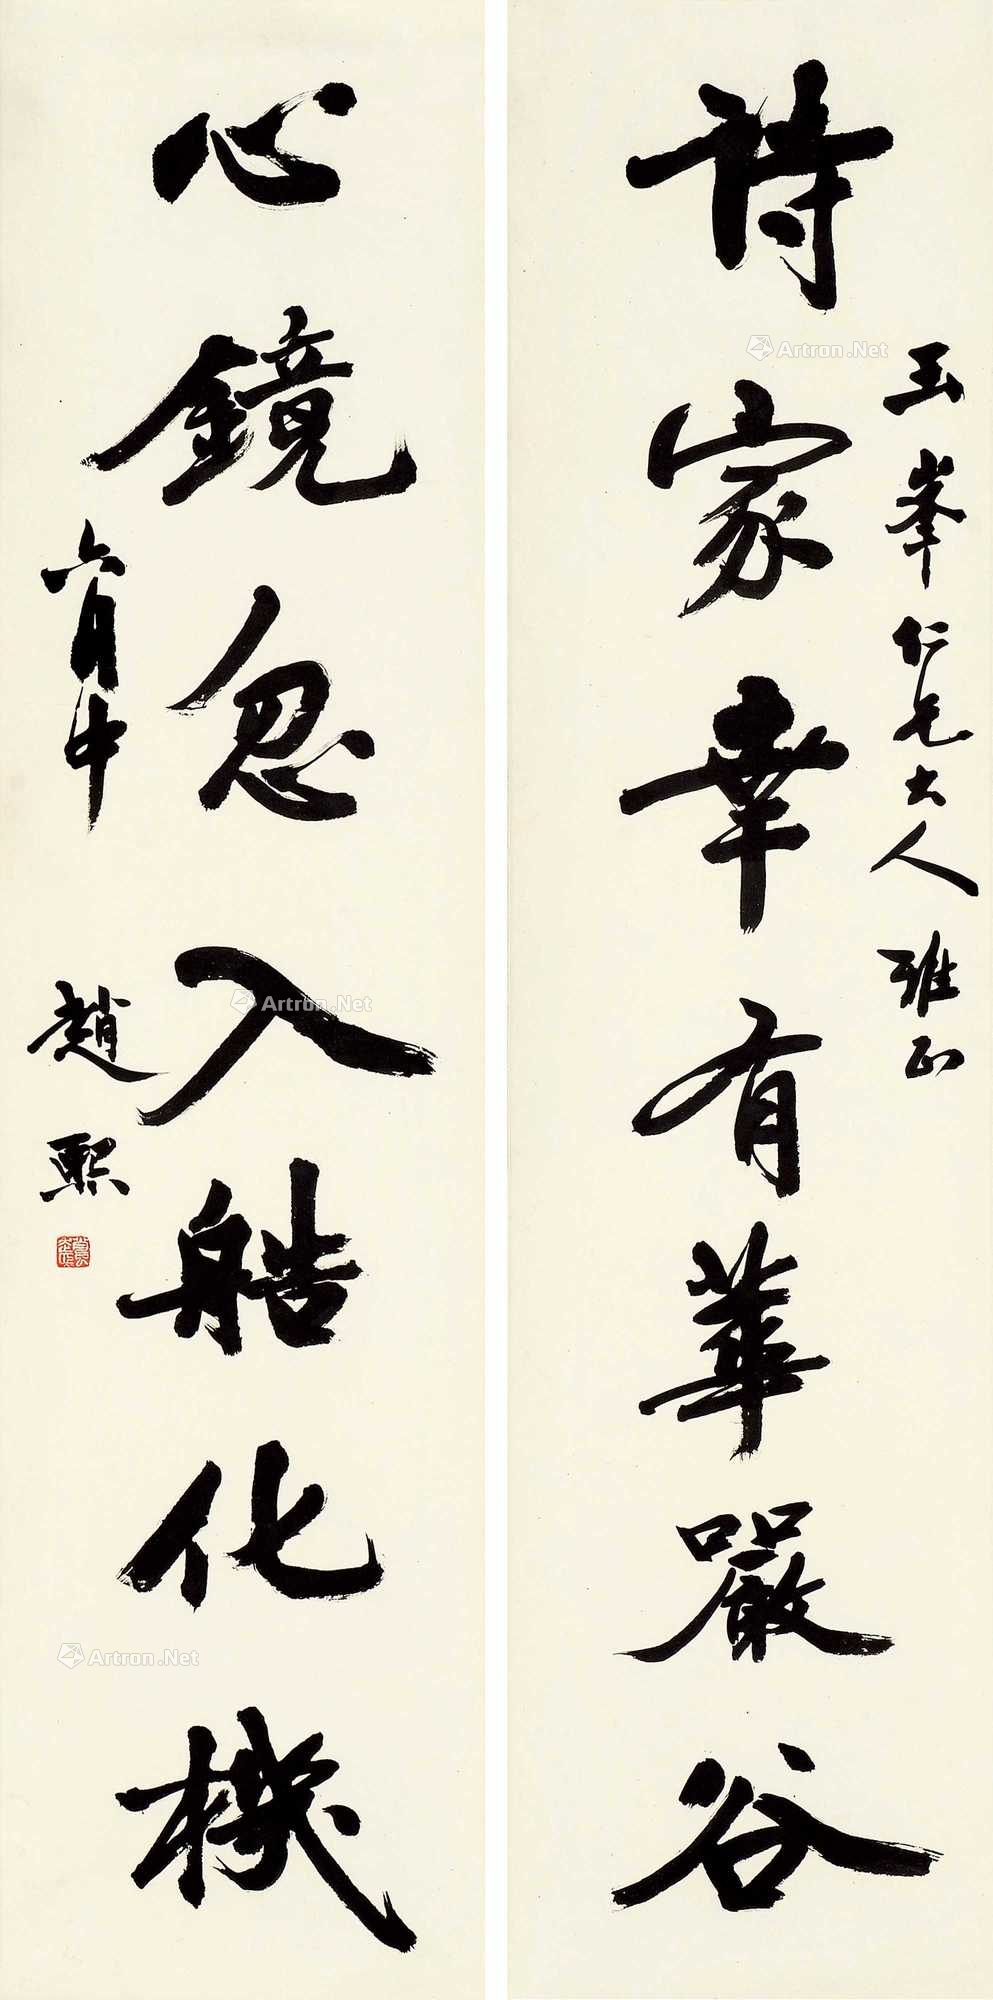 玉峯仁兄大人雅正
詩家幸有華嚴谷
心鏡忽入艁化機
六月中
趙熙
Artron.Net
Artron.Net
Artron.Net